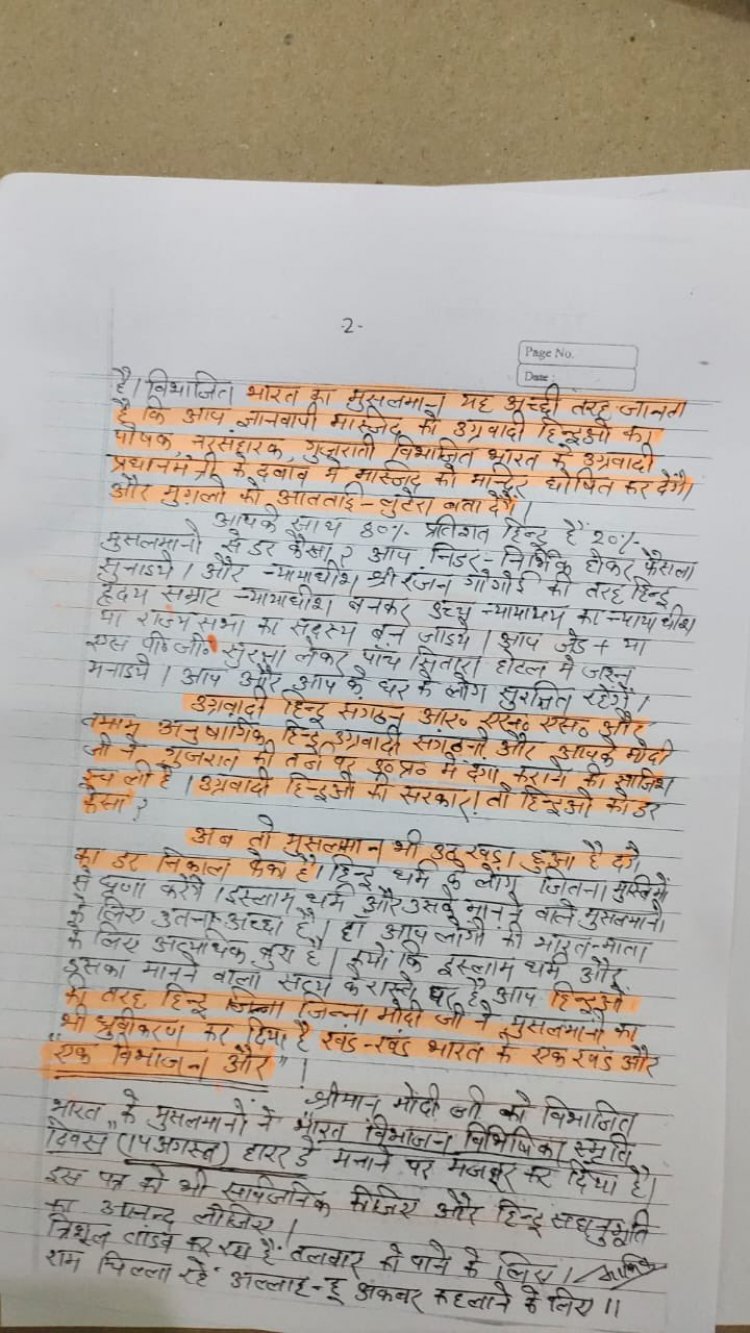 -2-
Page No.
Date
है। विभाजित भारत का मुसलमान यह अच्छी तरह जानता
है कि आप ज्ञानवापी मस्जिद को उग्रवादी हिन्दुओं का
पोषक, नरसंहारक, गुजराती विभाजित भारत के उग्रवादी
प्रधानमंत्री के दबाव में मस्जिद को मन्दिर घोषित कर देंगे।
और मुगलों को आतताई-लुटेरा बता देंगे।
आपके साथ 80% प्रतिशत हिन्दू हैं 20%
मुसलमानो से डर कैसा? आप निडर-निर्भिक होकर फैसला
सुनाइये। और न्यायाधीश श्री रंजन गोगोई की तरह हिन्दू
हृदय सम्राट न्यायाधीश बनकर उच्च न्यायालय का न्यायाधीश
या राज्य सभा का सदस्य बन जाइये। आप जेड + या
एस पी॰ जी॰ सुरक्षा लेकर पांच सितारा होटल में जश्न
मनाइये। आप और आप के घर के लोग सुरक्षित रहेगें।
उग्रवादी हिन्दू संगठन आर॰ एस॰ एस॰ और
तमाम अनुषांगिक हिन्दू उग्रवादी संगठनो और आपके मोदी
जी ने गुजरात की तर्ज पर उ॰ प्र॰ में दंगा कराने की साजिश
रच ली है। उग्रवादी हिन्दुओं की सरकार! तो हिन्दुओं को डर
कैसा?
अब तो मुसलमान भी उठ खड़ा हुआ है दंगे
का डर निकाल फेंका है। हिन्दू धर्म के लोग जितना मुस्लिमों
से घृणा करेंगे। इस्लाम धर्म और उसके मानने वाले मुसलमानो
के लिए उतना अच्छा है। हाँ आप लोगों की भारत-माता
के लिए अत्याधिक बुरा है। क्यों कि इस्लाम धर्म और
इसका मानने वाला सत्य के रास्ते पर है आप हिन्दुओं
की तरह हिन्दू जिन्ना मोदी जी ने मुसलमानों का
भी ध्रुवीकरण कर दिया है खंड-खंड भारत के एक खंड और
"एक विभाजन और"।
श्रीमान मोदी जी को विभाजित
भारत के मुसलमानों ने "भारत विभाजन विभिषिका स्मृति
दिवस" (14 अगस्त) हारर डे मनाने पर मजबूर कर दिया है।
इस पत्र को भी सार्वजनिक कीजिए और हिन्दू सहानुभूति
का आनन्द लीजिए।
त्रिशूल तांडव कर रहा है तलवार को पाने के लिए।
राम चिल्ला रहे अल्लाह-हू अकबर कहलाने के लिए॥